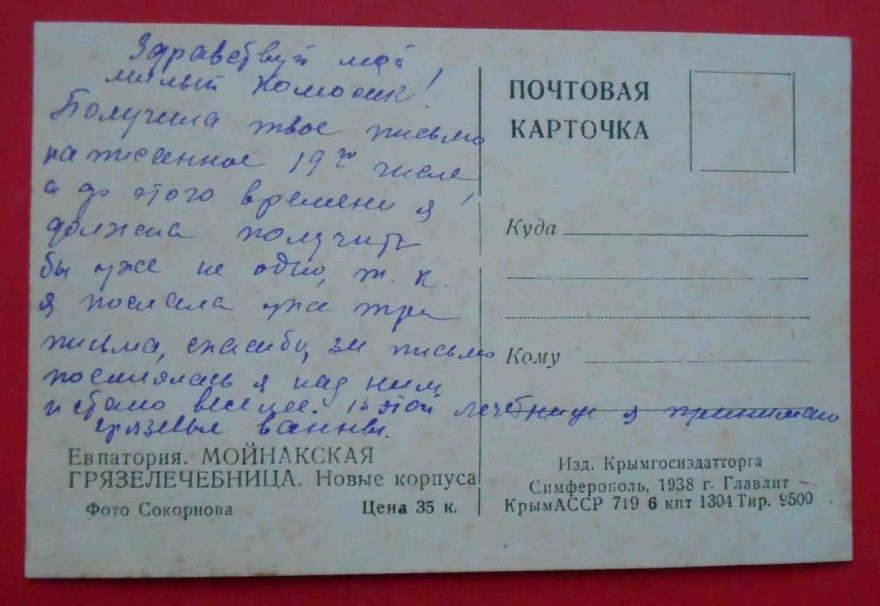 Здравствуй мой
милый Комосик!
Получила твое письмо
написанное 19го числа
а до этого времени я
должна получить
бы уже не одно, т. к.
я послала уже три
письма, спасибо, за письмо
посмеялась я над ним
и стало веселее. В этой лечебнице я принимаю
грязевые ванны.
Евпатория. МОЙНАКСКАЯ
ГРЯЗЕЛЕЧЕБНИЦА. Новые корпуса
Фото Сокорнова Цена 35 к.
ПОЧТОВАЯ
КАРТОЧКА
Куда
Кому
Изд. Крымгосиздатторга
Симферополь, 1938 г. Главлит
КрымАССР 719 6 кпт 1304 Тир. 9500